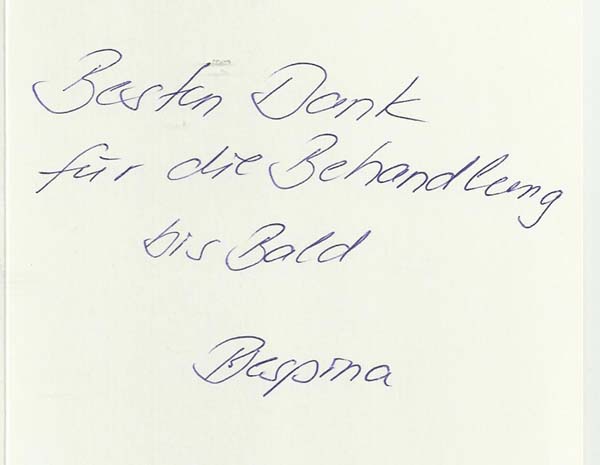 Besten Dank
für die Behandlung
bis Bald
Despina